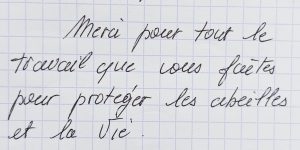 Merci pour tout le
travail que vous faîtes
pour protéger les abeilles
et la Vie.